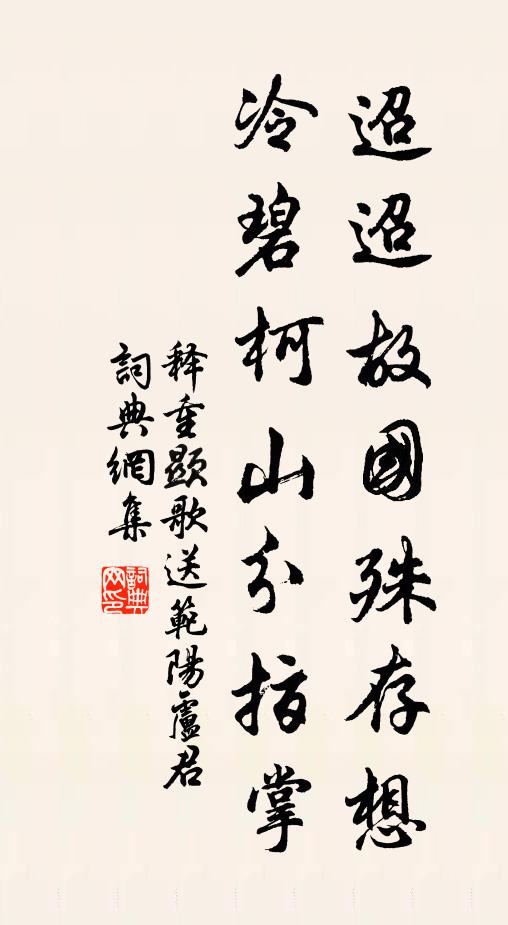 迢迢故國殊存想
冷碧柯山分指掌
释重顯歌送範陽盧君
詞典網集
詞典
网印